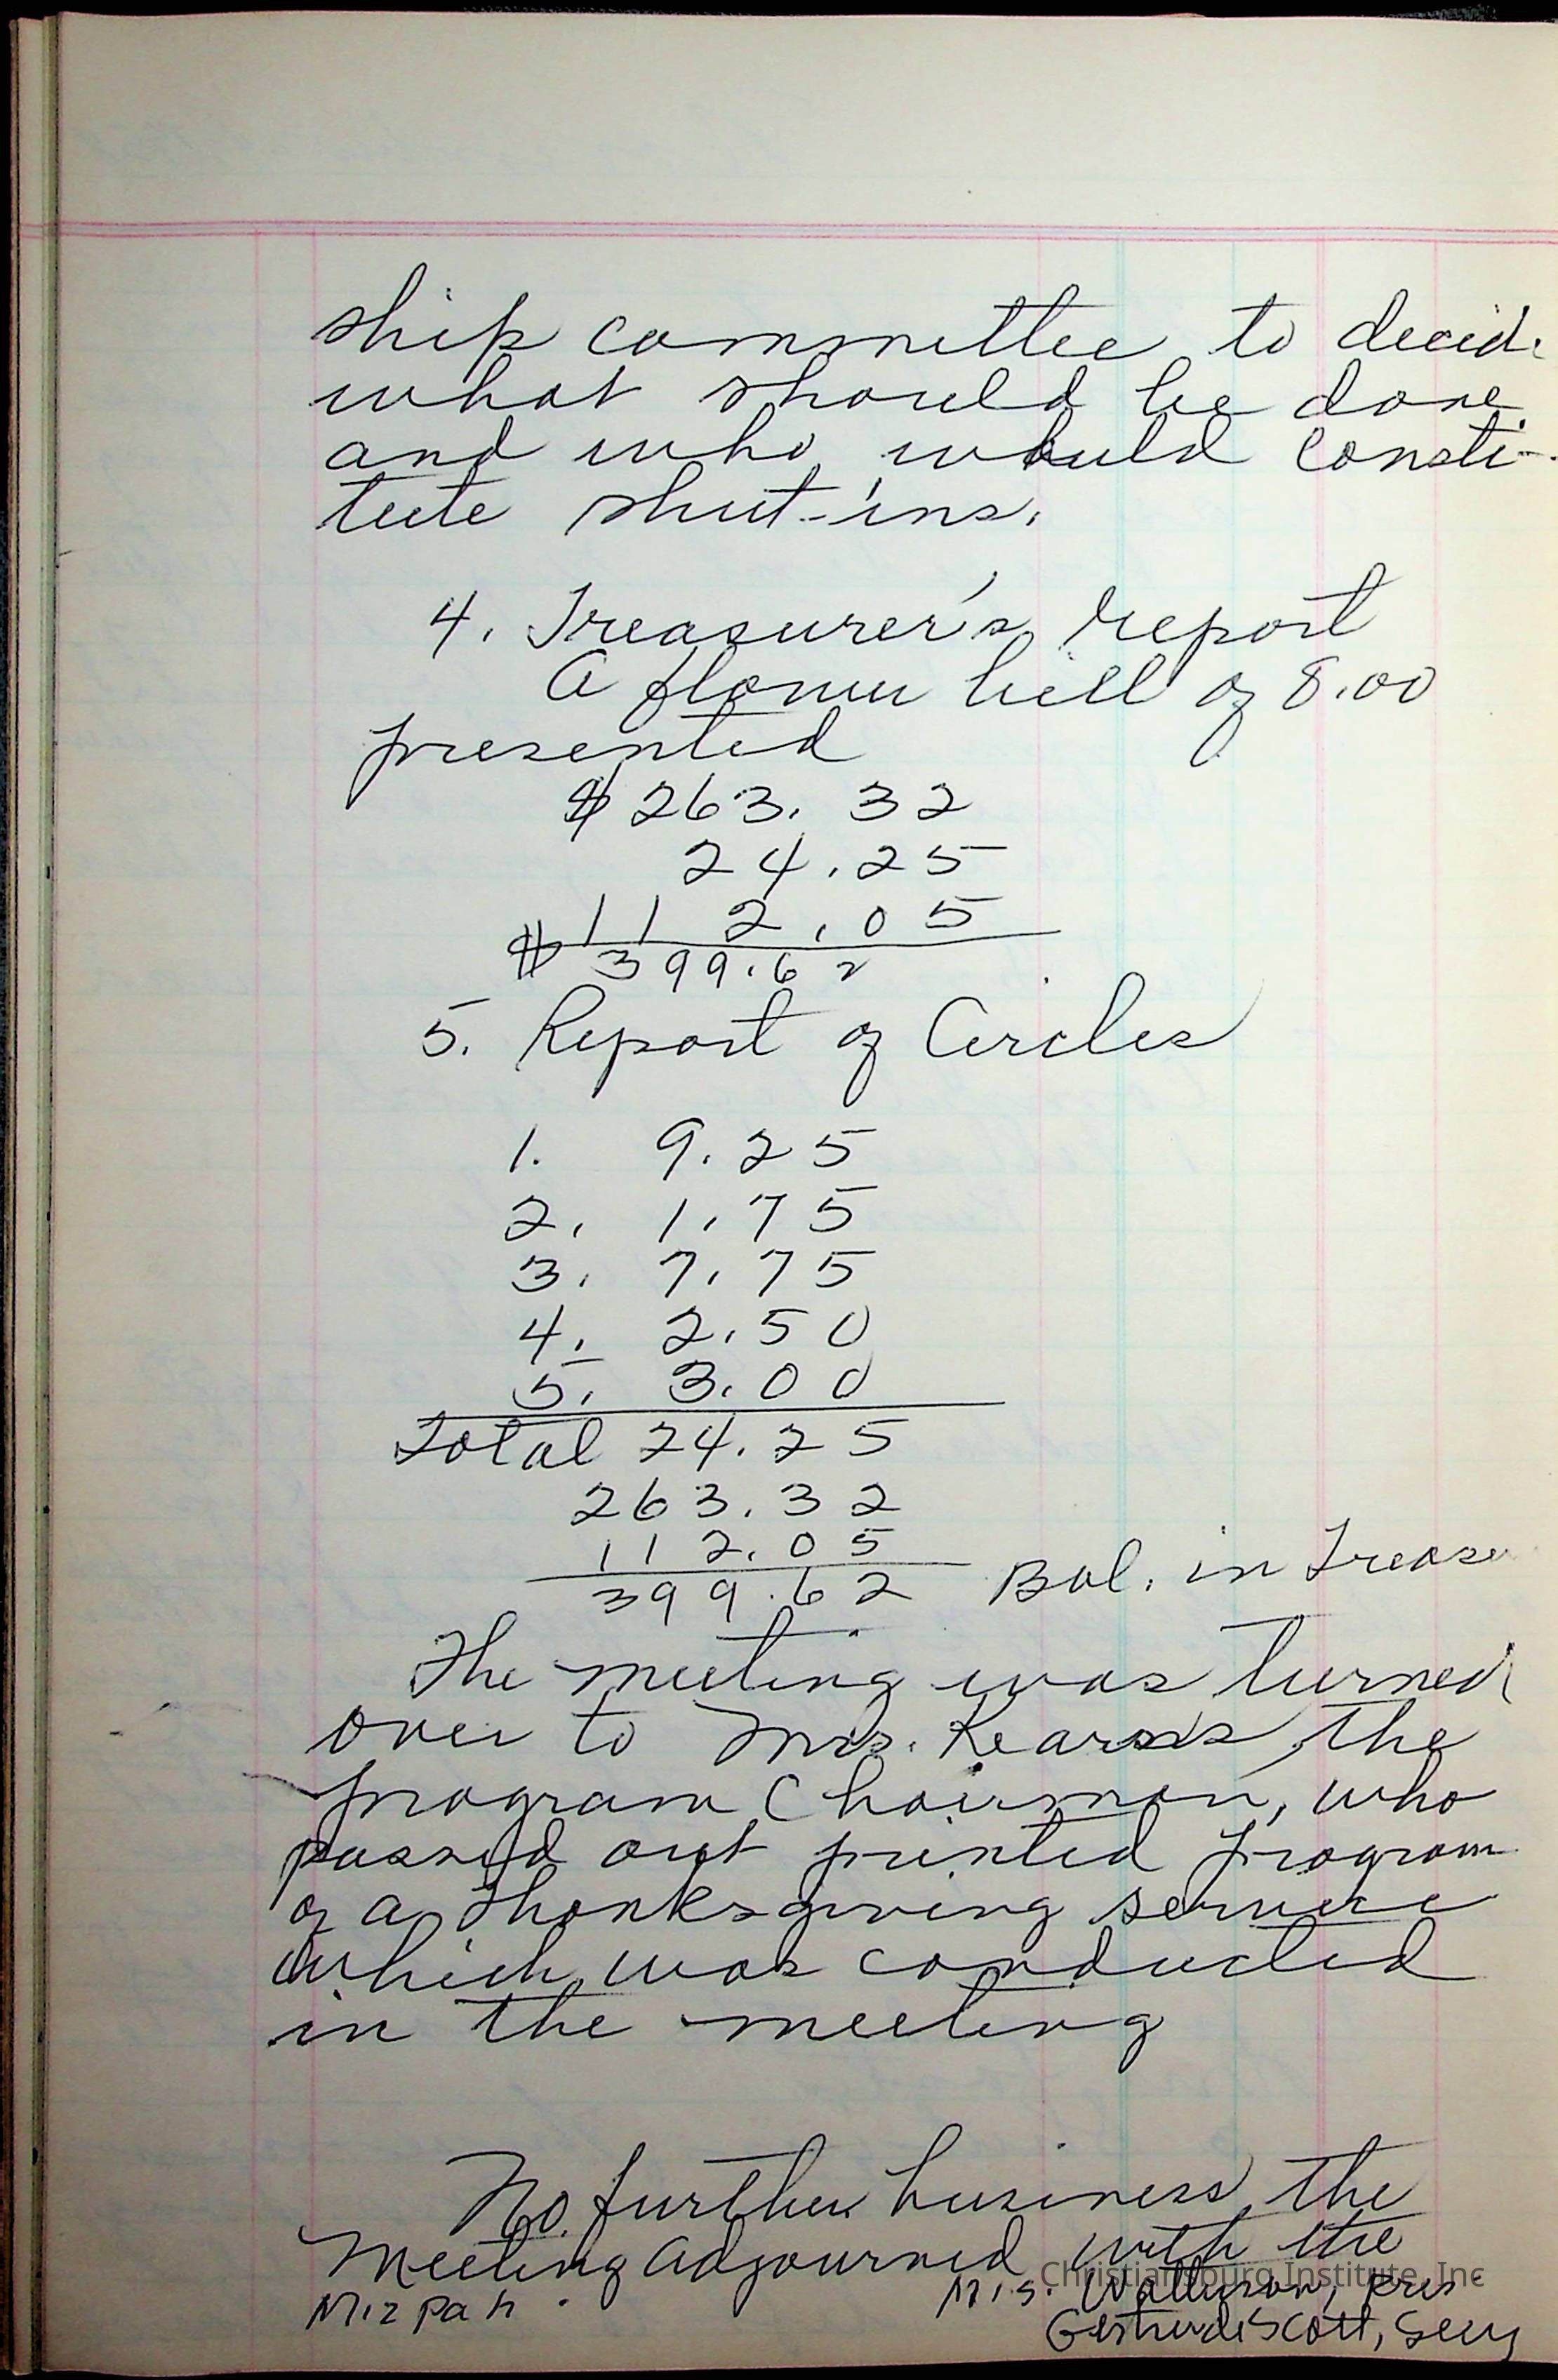 ship committee to decide
what should be done
and who would consti-
tute shut-ins.
4. Treasurer's report
A flower bill of 8.00
presented
$263.32
24.25
112.05
$399.62
5. Report of Circles
1. 9.25
2. 1.75
3. 7.75
4. 2.50
5. 3.00
Total 24.25
263.32
112.05
399.62 Bal. in Treas
The meeting was turned
over to Mrs. Kearns, the
program Chairman, who
passed out printed program
of a Thanksgiving service
which was conducted
in the meeting
No further business, the
Meeting adjourned with the
Mizpah.
Christiansburg Institute, Inc
Mrs. Pres
Gertrude Scott, Secy